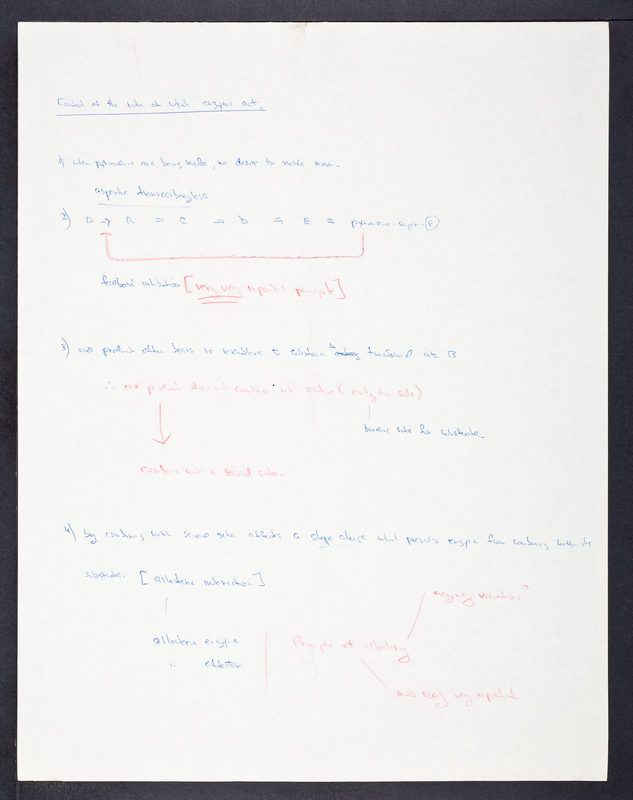 Control of the rate at which enzymes act.
1) when pyrimidines are being made, no desire to make more.
aspartic transcarbamylase
2) A → B → C → D → E → pyrimidine-sugar-P
feedback inhibition [very very important principle]
3) end product often bears no resemblance to substance A transformed into B
∴ end product doesn't combine with active (catalytic site)
binding site for substrate.
combines with a second site.
4) by combining with second site effects a shape change which prevents enzyme from combining with its
substrate. [allosteric interaction]
many many varieties?
allosteric enzyme
Principle of allostery
" effector
very very important